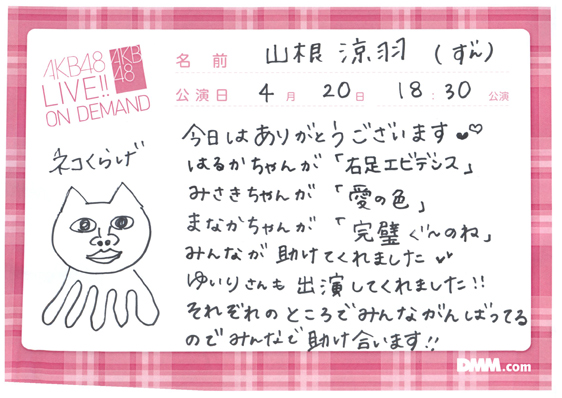 AKB48
LIVE!!
ON DEMAND
AKB
48
名前 山根 涼羽 (ずん)
公演日 4月 20日 18:30 公演
ネコくらげ
今日はありがとうございます
はるかちゃんが「右足エビデンス」
みさきちゃんが「愛の色」
まなかちゃんが「完璧ぐ〜のね」
みんなが助けてくれました
ゆいりさんも出演してくれました!!
それぞれのところでみんながんばってる
のでみんなで助け合います!!
DMM.com